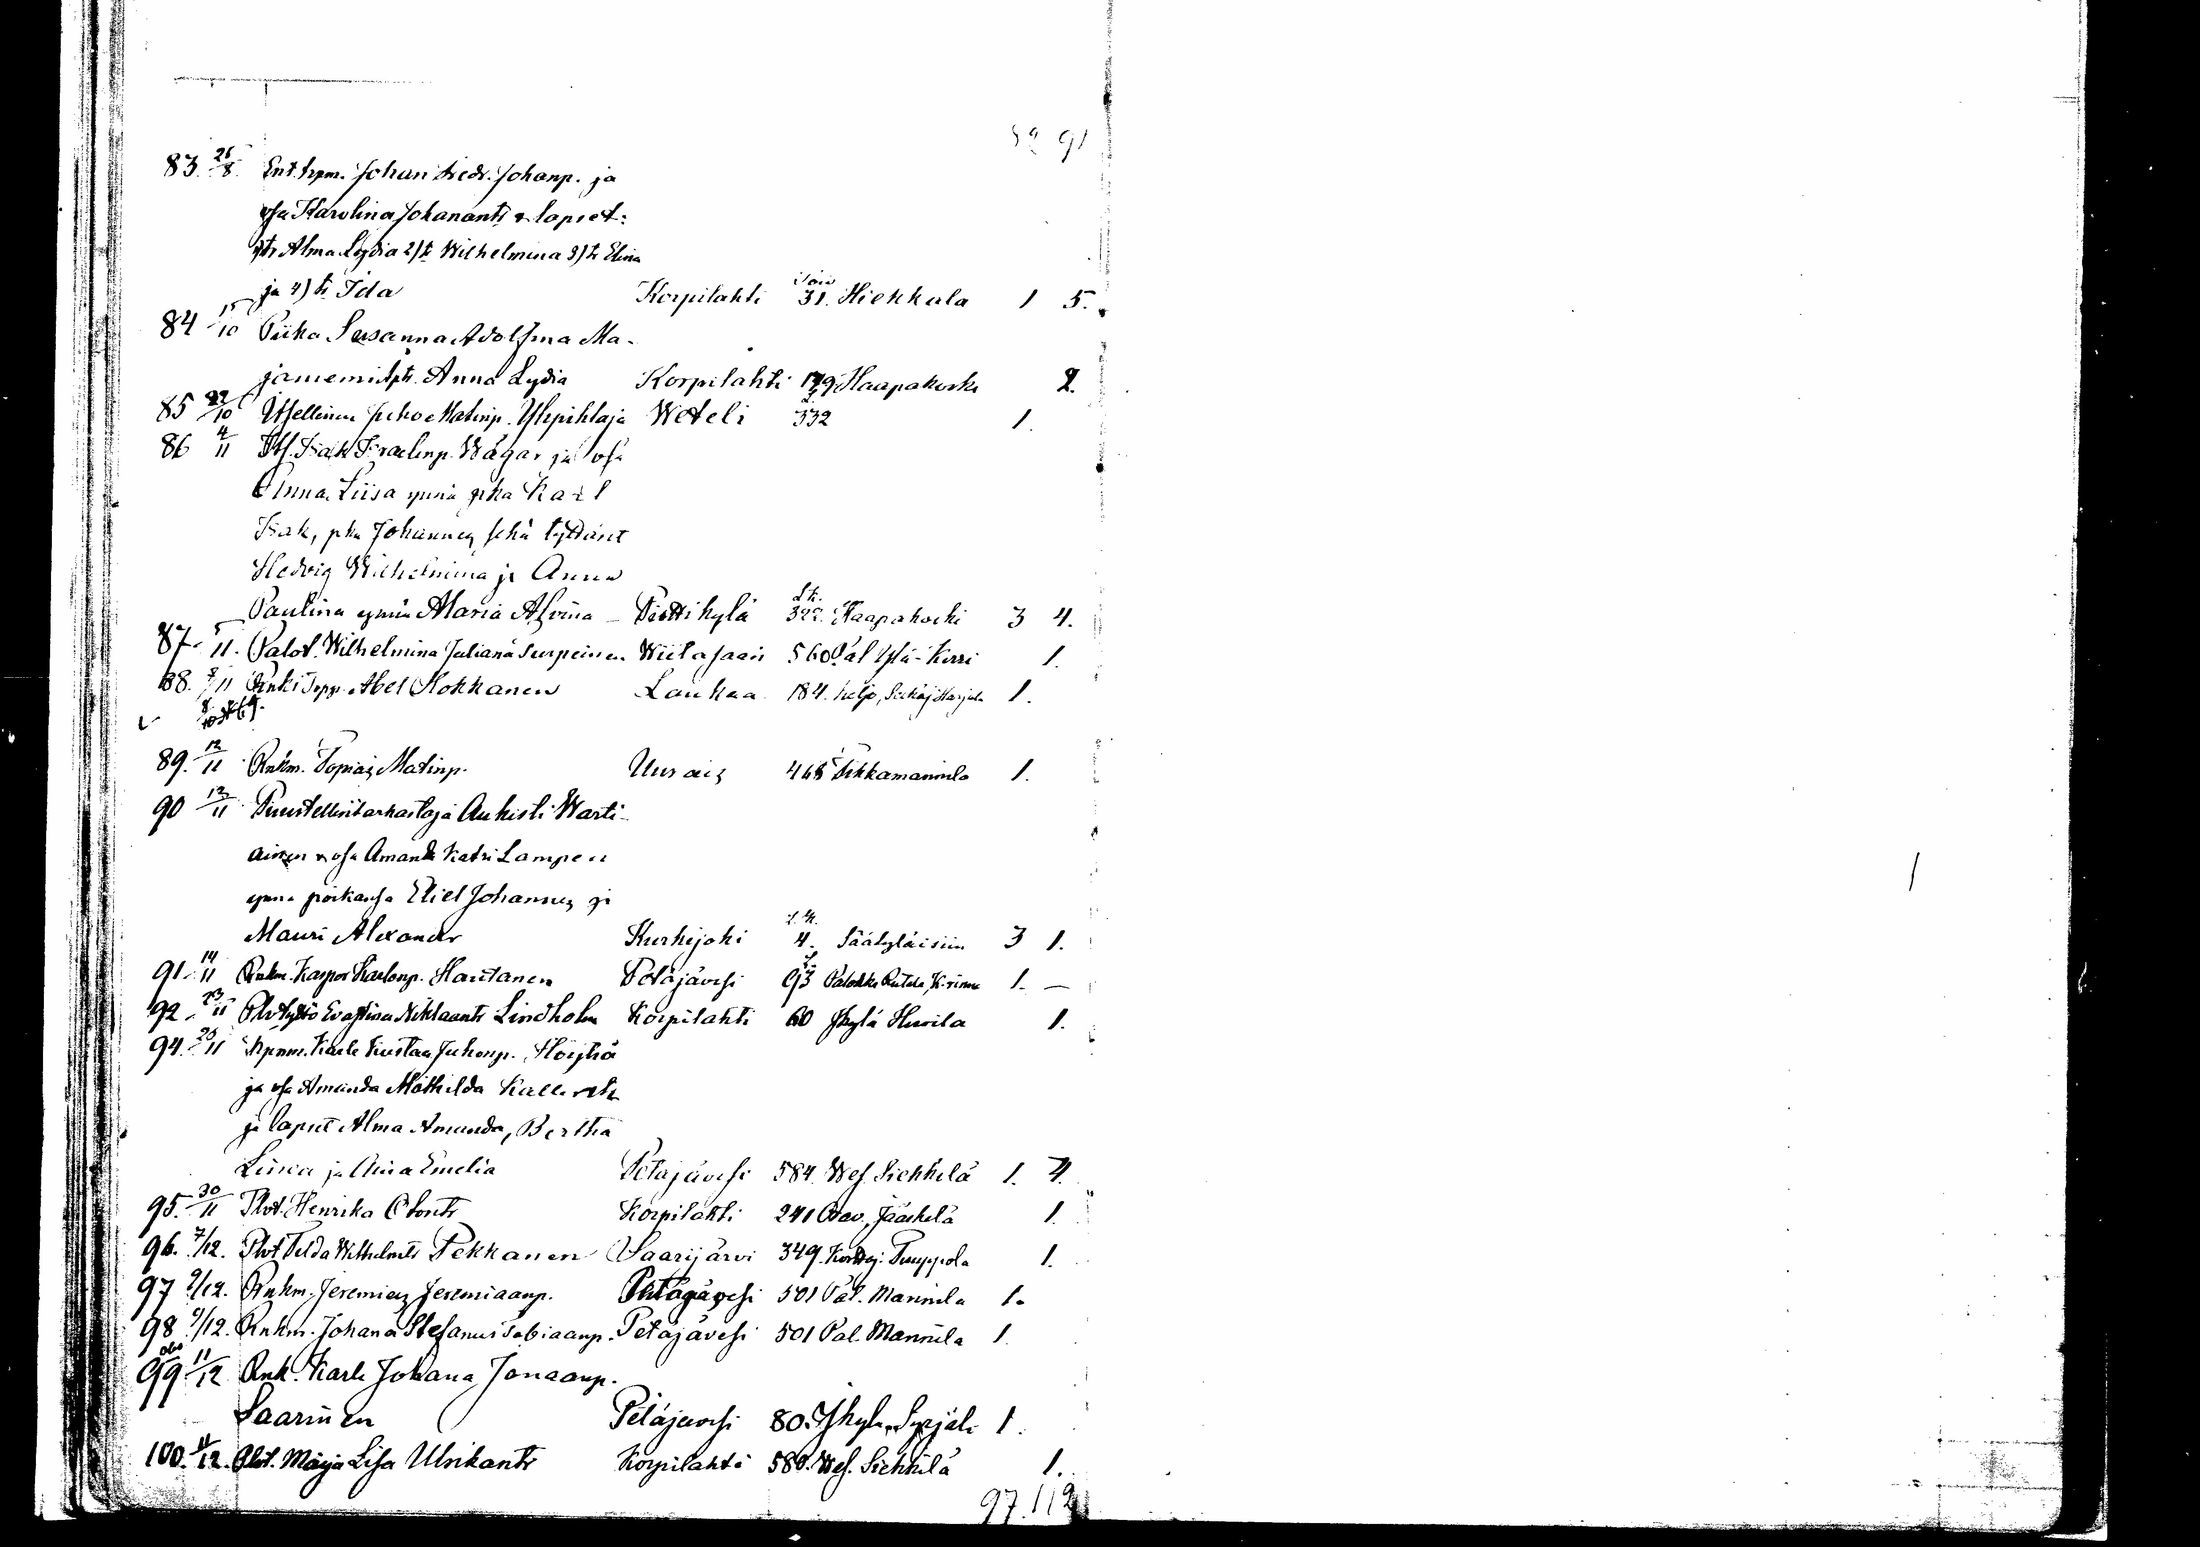 91
83. 26/8. Ent. trpm. Johan Fredr. Johanp. ja
vsa Karolina Johanantr & lapset:
1)tr Alma Lydia 2)tr Wilhelmina 3)tr Elina
ja 4) tr Ida Korpilahti 31. Hiekkala 1 5.
84 15/10 Piika Susanna Adolfina Ma-
janiemi & tr. Anna Lydia Korpilahti 179 Haapakoski 2.
85 22/10 Itsellinen Juho Matinp. Ylipihlaja Weteli 332 1.
86 4/11 Its. Isak Israelinp. Wägar ja vsa
Anna Liisa ynnä pka Karl
Isak, pka Johannes sekä tyttäret
Hedvig Wilhelmina ja Anna
Paulina ynnä Maria Alvina - Pirttikylä 322. Haapakoski 3 4.
87. 5/11. Palot. Wilhelmina Juliana Surpeinen Wiitasaari 560 Pal Ylä-Kirri 1.
88. 7/11 Rnki Abel Kokkanen Laukaa 184. 1.
89. 12/11 Rnkm. Topias Matinp. Uurais 465 Tikkamannila 1.
90 13/11 Puustellintarkastaja Aukusti Warti-
ainen & vsa Amanda Katri Lampen
ynnä poikansa Eliel Johannes ja
Mauri Alexander Kurkijoki 4. Säätyläisiin 3 1.
91. 14/11 Rnkm. Kaspor Kaarlonp. Hautanen Petäjävesi 93 Palokka 1. —
92. 23/11 Plvtyttö Eva Stina Niklaantr Lindholm Korpilahti 60 Jkylä Huvila 1.
94. 25/11 Kaarle Kustaa Juhonp. Höythä
ja vsa Amanda Mathilda Kallentr
ja lapset Alma Amanda, Bertha
Liina ja Aina Emelia Petäjävesi 584. Wes. Siekkilä 1. 4.
95. 30/11 Plvt. Henrika Olontr Korpilahti 241 Jääskelä 1.
96. 7/12. Plvt Tilda Wilhelmtr Pekkanen Saarijärvi 349. Tuuppola 1.
97 9/12. Rnkm. Jeremias Jeremiaanp. Petäjävesi 501 Pal. Mannila 1.
98 9/12. Rnkm. Johana Stefanus Tobiaanp. Petäjävesi 501 Pal. Mannila 1.
99 11/12 Rnk. Karle Johana Jonaanp.
Saarinen Petäjävesi 80. Jkylä, Syrjälä 1.
100. 11/12. Plvt. Maija Lisa Ulrikantr Korpilahti 580. Wes. Siekkilä 1.
97. 112